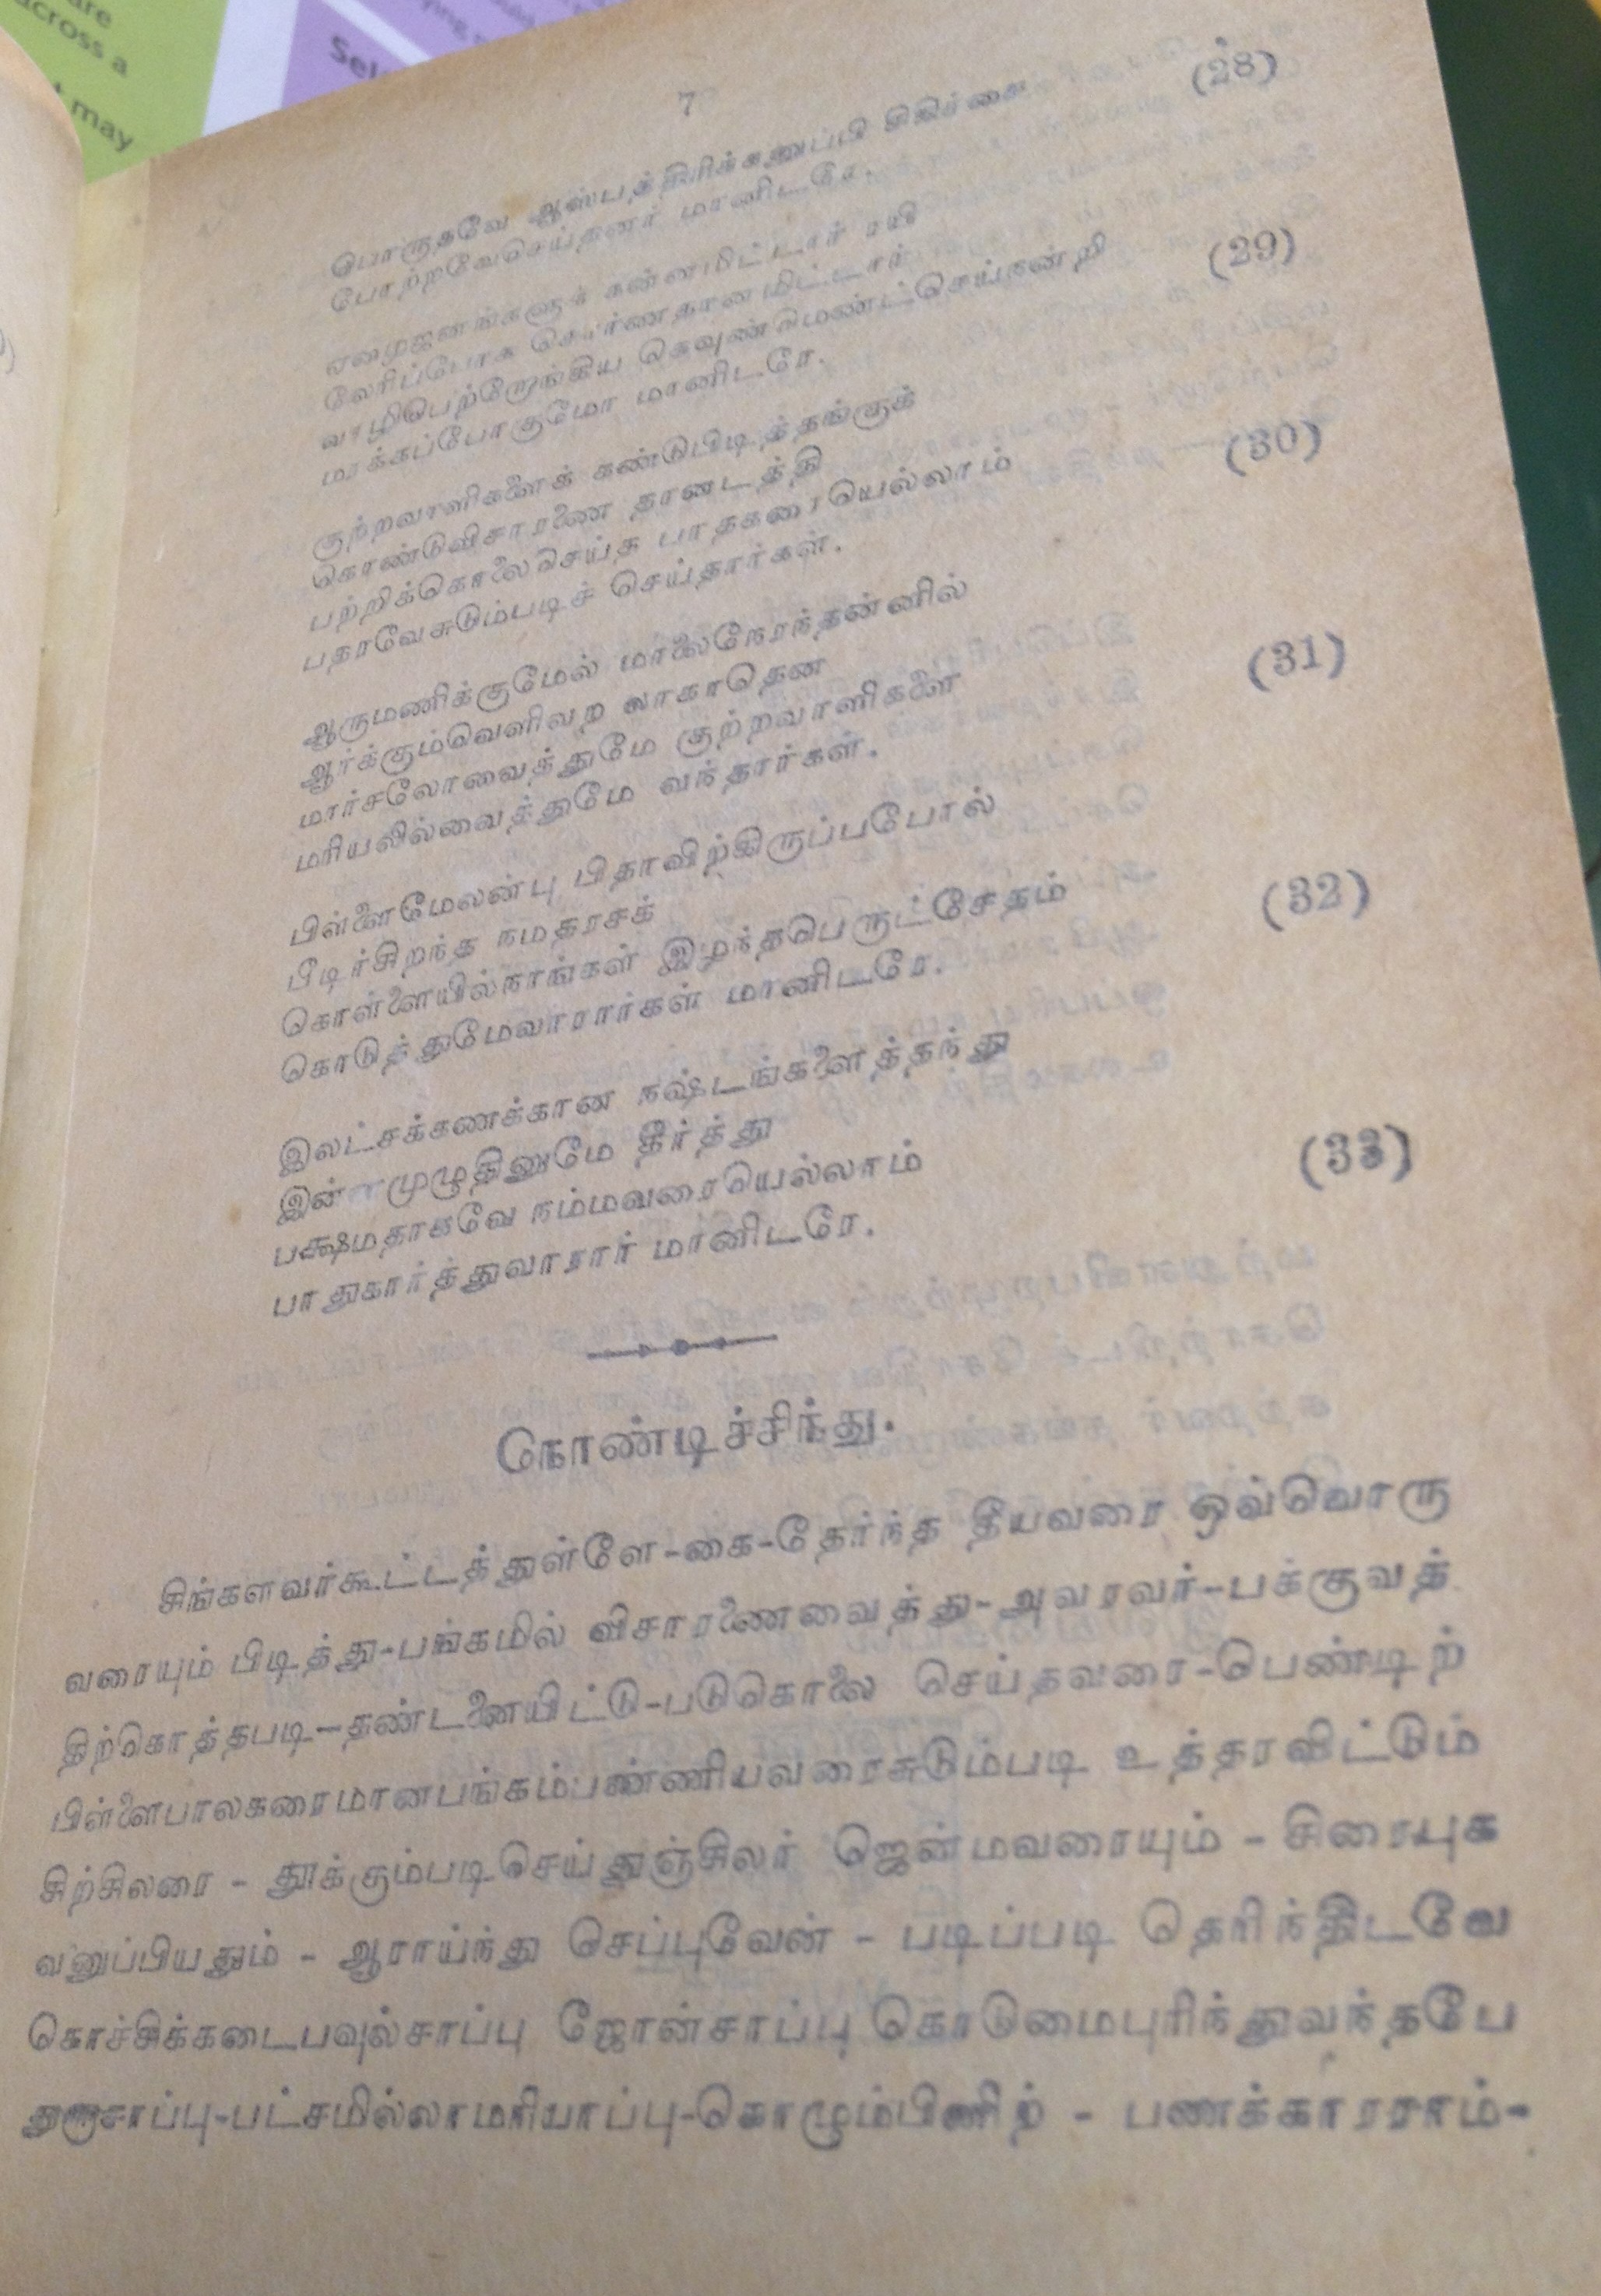 are
across a
may
Sel
7
பொருதவே ஆஸ்பத்திரிக்கனுப்பி சிகிச்சை
போற்றவேசெய்தனர் மானிடரே. (28)
ஏழைஜனங்களுக் கன்னமிட்டார் ரயி
லேரிப்போக சொர்ணதானமிட்டார்
வாழிபெற்றோங்கிய கெவுண்மெண்ட்செய்நன்றி
மாக்கப்போகுமோ மானிடரே. (29)
குற்றவாளிகளைக் கண்டுபிடித்தங்குக்
கொண்டுவிசாரணை தானடத்தி
பற்றிக்கொலைசெய்த பாதகரையெல்லாம்
பதரவேசுடும்படிச் செய்தார்கள். (30)
ஆருமணிக்குமேல் மாலைநேரந்தன்னில்
ஆர்க்கும்வெளிவற லாகாதென
மார்சலோவைத்துமே குற்றவாளிகளை
மரியலில்வைத்துமே வந்தார்கள். (31)
பிள்ளைமேலன்பு பிதாவிற்கிருப்பபோல்
பீடிர்சிறந்த நமதரசக்
கொள்ளையில்நாங்கள் இழந்தபெருட்சேதம்
கொடுத்துமேவாரார்கள் மானிடரே. (32)
இலட்சக்கணக்கான நஷ்டங்களைத்தந்து
முழுதினுமே தீர்த்து
பக்ஷமதாகவே நம்மவரையெல்லாம்
பாதுகார்த்துவாரார் மானிடரே. (33)
நொண்டிச்சிந்து.
சிங்களவர்கூட்டத்துள்ளே-கை-தேர்ந்த தீயவரை ஒவ்வொரு
வரையும் பிடித்து-பங்கமில் விசாரணைவைத்து-அவரவர்-பக்குவத்
திற்கொத்தபடி-தண்டனையிட்டு-படுகொலை செய்தவரை-பெண்டிற்
பிள்ளைபாலகரைமானபங்கம்பண்ணியவரைசுடும்படி உத்தரவிட்டும்
சிற்சிலரை - தூக்கும்படிசெய்துஞ்சிலர் ஜென்மவரையும் - சிரையுக
வனுப்பியதும் - ஆராய்ந்து செப்புவேன் - படிப்படி தெரிந்திடவே
கொச்சிக்கடைபவுல்சாப்பு ஜோன்சாப்பு கொடுமைபுரிந்துவந்தபே
துருசாப்பு-பட்சமில்லாமரியாப்பு-கொழும்பினிற் - பணக்காரராம்-